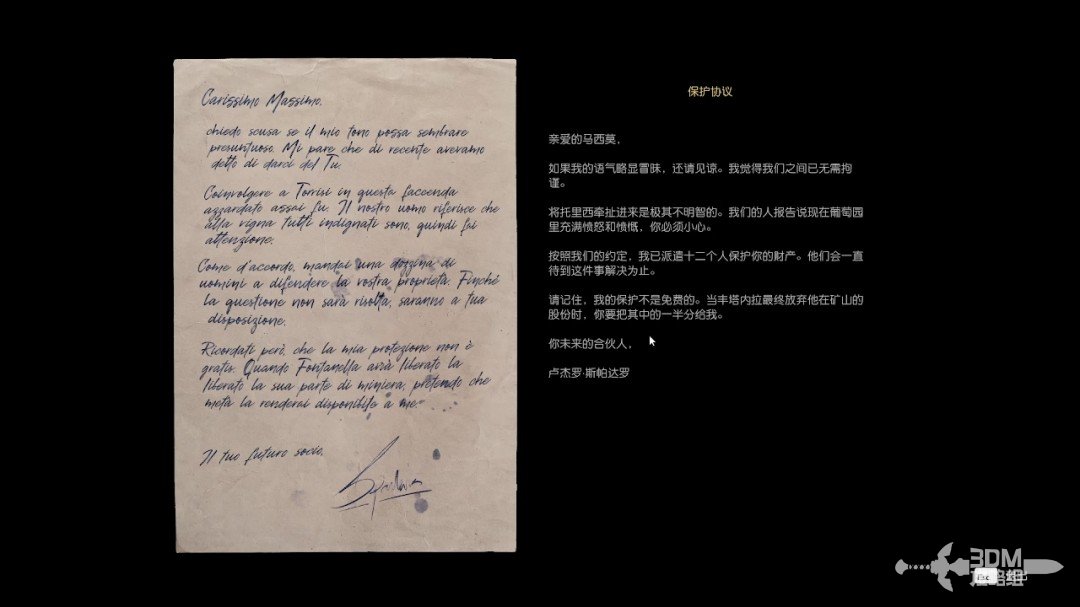 Carissimo Massimo,
chiedo scusa se il mio tono possa sembrare
presuntuoso. Mi pare che di recente avevamo
detto di darci del Tu.
Coinvolgere a Torrisi in questa faccenda
azzardato assai fu. Il nostro uomo riferisce che
alla vigna tutti indignati sono, quindi fai
attenzione.
Come d'accordo, mandai una dozzina di
uomini a difendere la vostra proprietà. Finché
la questione non sarà risolta, saranno a tua
disposizione.
Ricordati però, che la mia protezione non è
gratis. Quando Fontanella avrà liberato la
liberato la sua parte di miniera, pretendo che
metà la renderai disponibile a me.
Il tuo futuro socio,
保护协议
亲爱的马西莫，
如果我的语气略显冒昧，还请见谅。我觉得我们之间已无需拘
谨。
将托里西牵扯进来是极其不明智的。我们的人报告说现在葡萄园
里充满愤怒和愤慨，你必须小心。
按照我们的约定，我已派遣十二个人保护你的财产。他们会一直
待到这件事解决为止。
请记住，我的保护不是免费的。当丰塔内拉最终放弃他在矿山的
股份时，你要把其中的一半分给我。
你未来的合伙人，
卢杰罗·斯帕达罗
3DM